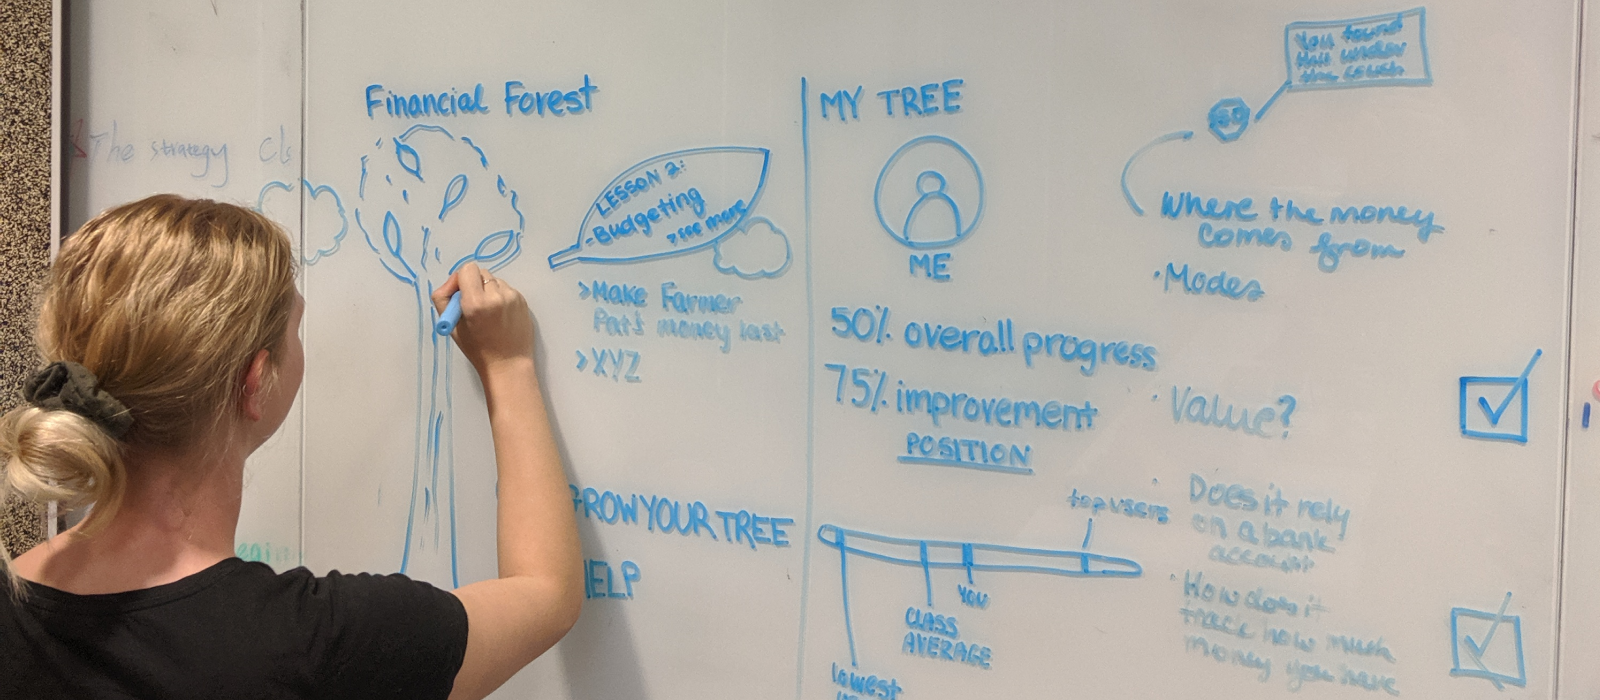 The strategy
Financial Forest
LESSON 2:
-Budgeting
>see more
>Make Farmer
Pat's money last
>XYZ
GROW YOUR TREE
HELP
MY TREE
ME
50% overall progress
75% improvement
POSITION
top users
YOU
CLASS
AVERAGE
lowest
You found
this under
the couch
Where the money
comes from
·Modes
· Value?
· Does it rely
on a bank
account
· How does it
track how much
money you have